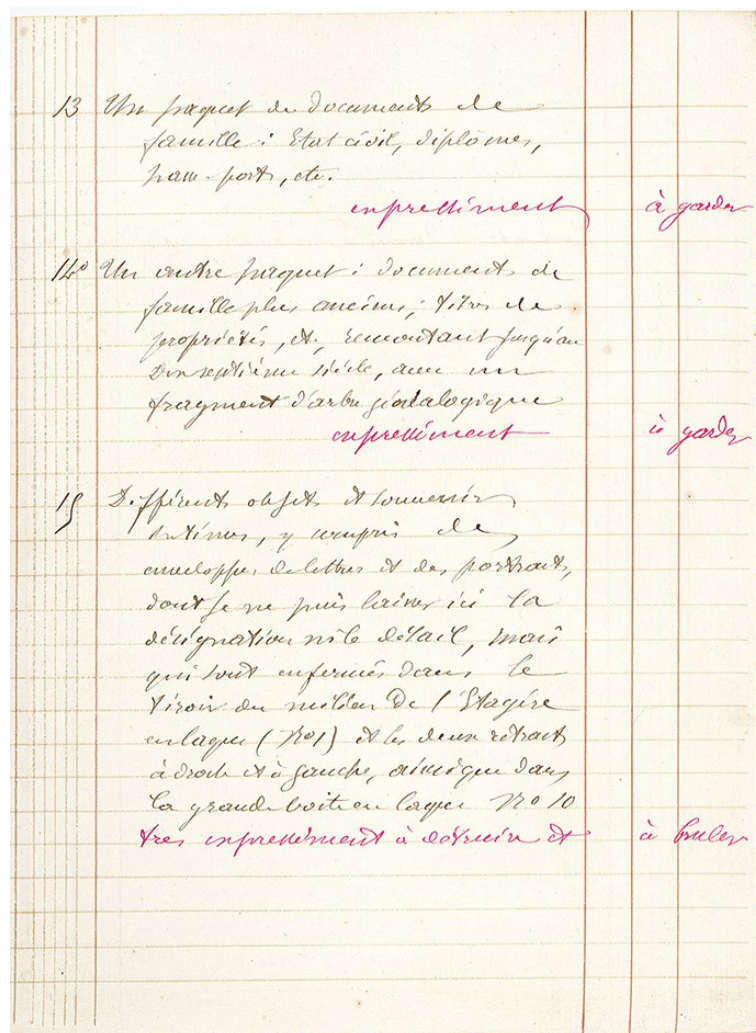 13 Un paquet de documents de
famille : Etat civil, diplomes,
passe-ports, etc.
expressément à garder
14º Un autre paquet : documents de
famille plus anciens ; titres de
propriétés, et, remontant jusqu'au
Dix septième siècle, avec un
fragment d'arbre généalogique
expressément à garder
15 Différents objets et souvenirs
intimes, y compris de
enveloppes de lettres et des portraits,
dont je ne puis laisser ici la
désignation ni le détail, mais
qui sont enfermés dans le
tiroir du milieu de l'Etagère
en laque (Nº1) et les deux retraits
à droite et à gauche, ainsi que dans
la grande boite en laque Nº 10
très expressément à détruire et à bruler